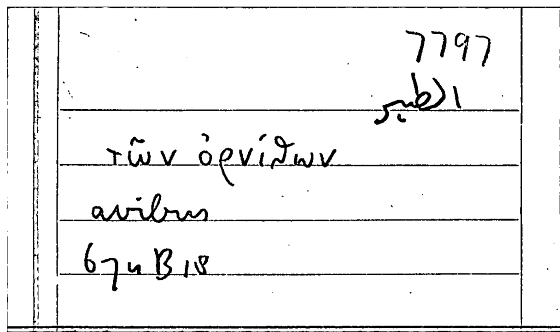 7797
الطير
τῶν ὀρνίθων
avibus
671 B 18